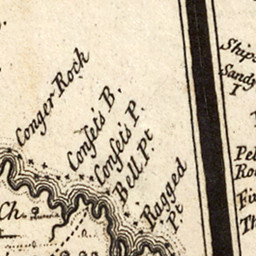 Conger Rock
Confets B.
Confets P.
Bell Pt
Ragged
Pt
Ch.
Ships
Sandy
I
Pel
Ro
Fi
Th